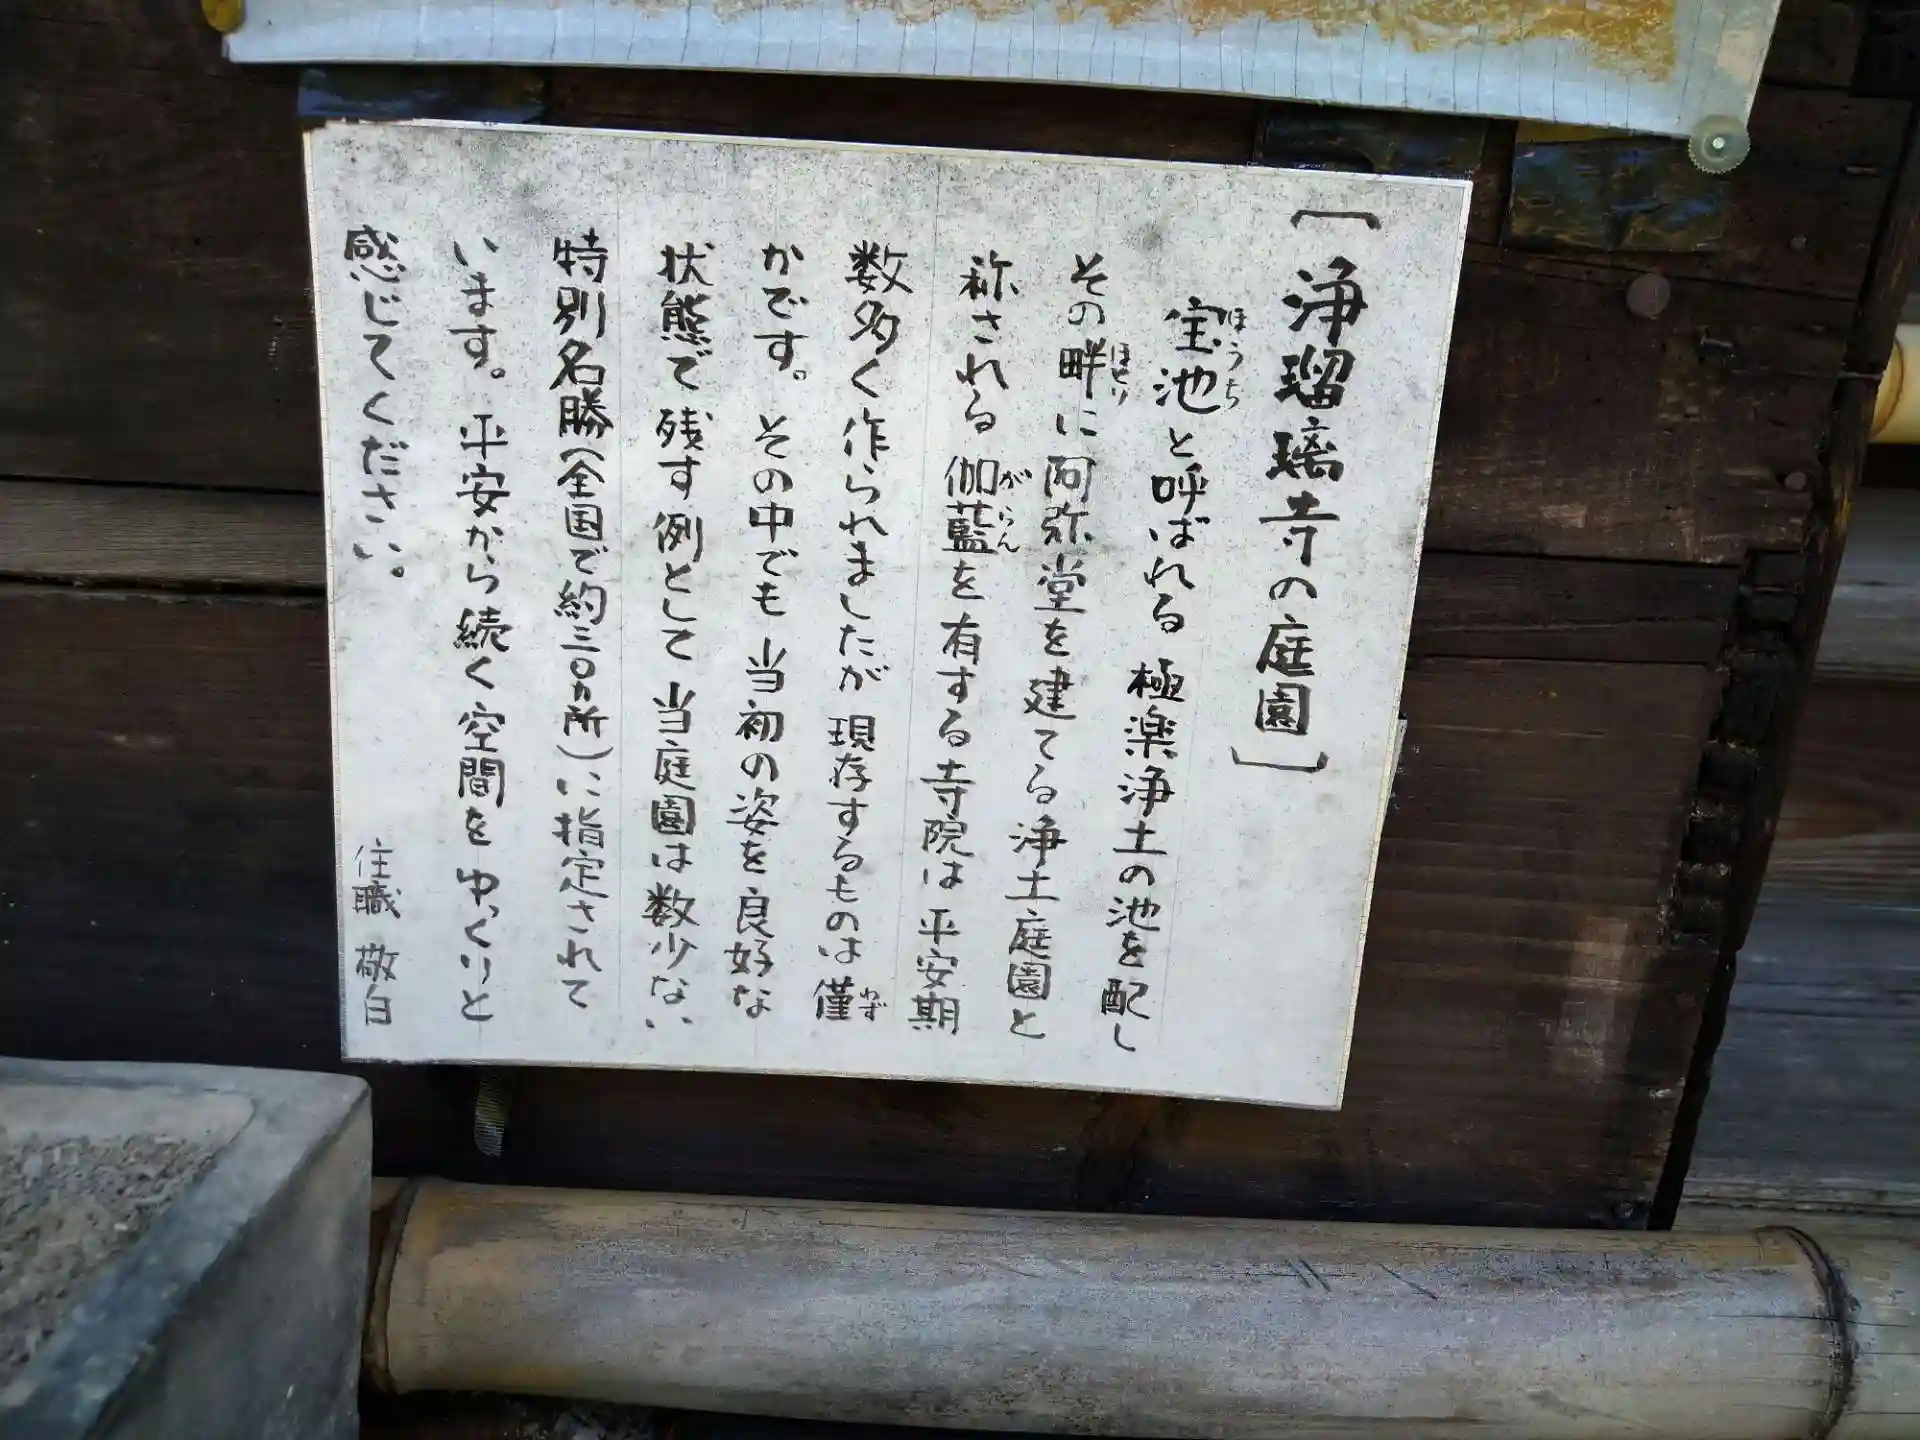 ［浄瑠璃寺の庭園］
宝池と呼ばれる極楽浄土の池を配し
ほうち
その畔に阿弥堂を建てる浄土庭園と
ほとり
称される伽藍を有する寺院は平安期
がらん
数多く作られましたが現存するものは僅
わず
かです。その中でも当初の姿を良好な
状態で残す例として当庭園は数少ない
特別名勝(全国で約三〇ヵ所)に指定されて
います。平安から続く空間をゆっくりと
感じてください。
住職 敬白